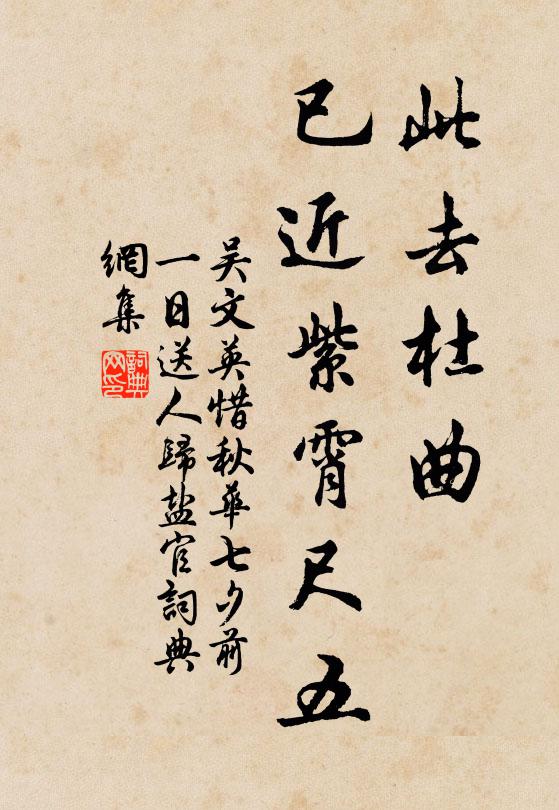 此去杜曲
已近紫霄尺五
吴文英惜秋華七夕前
一日送人歸盐官詞典
網集
詞典
网印